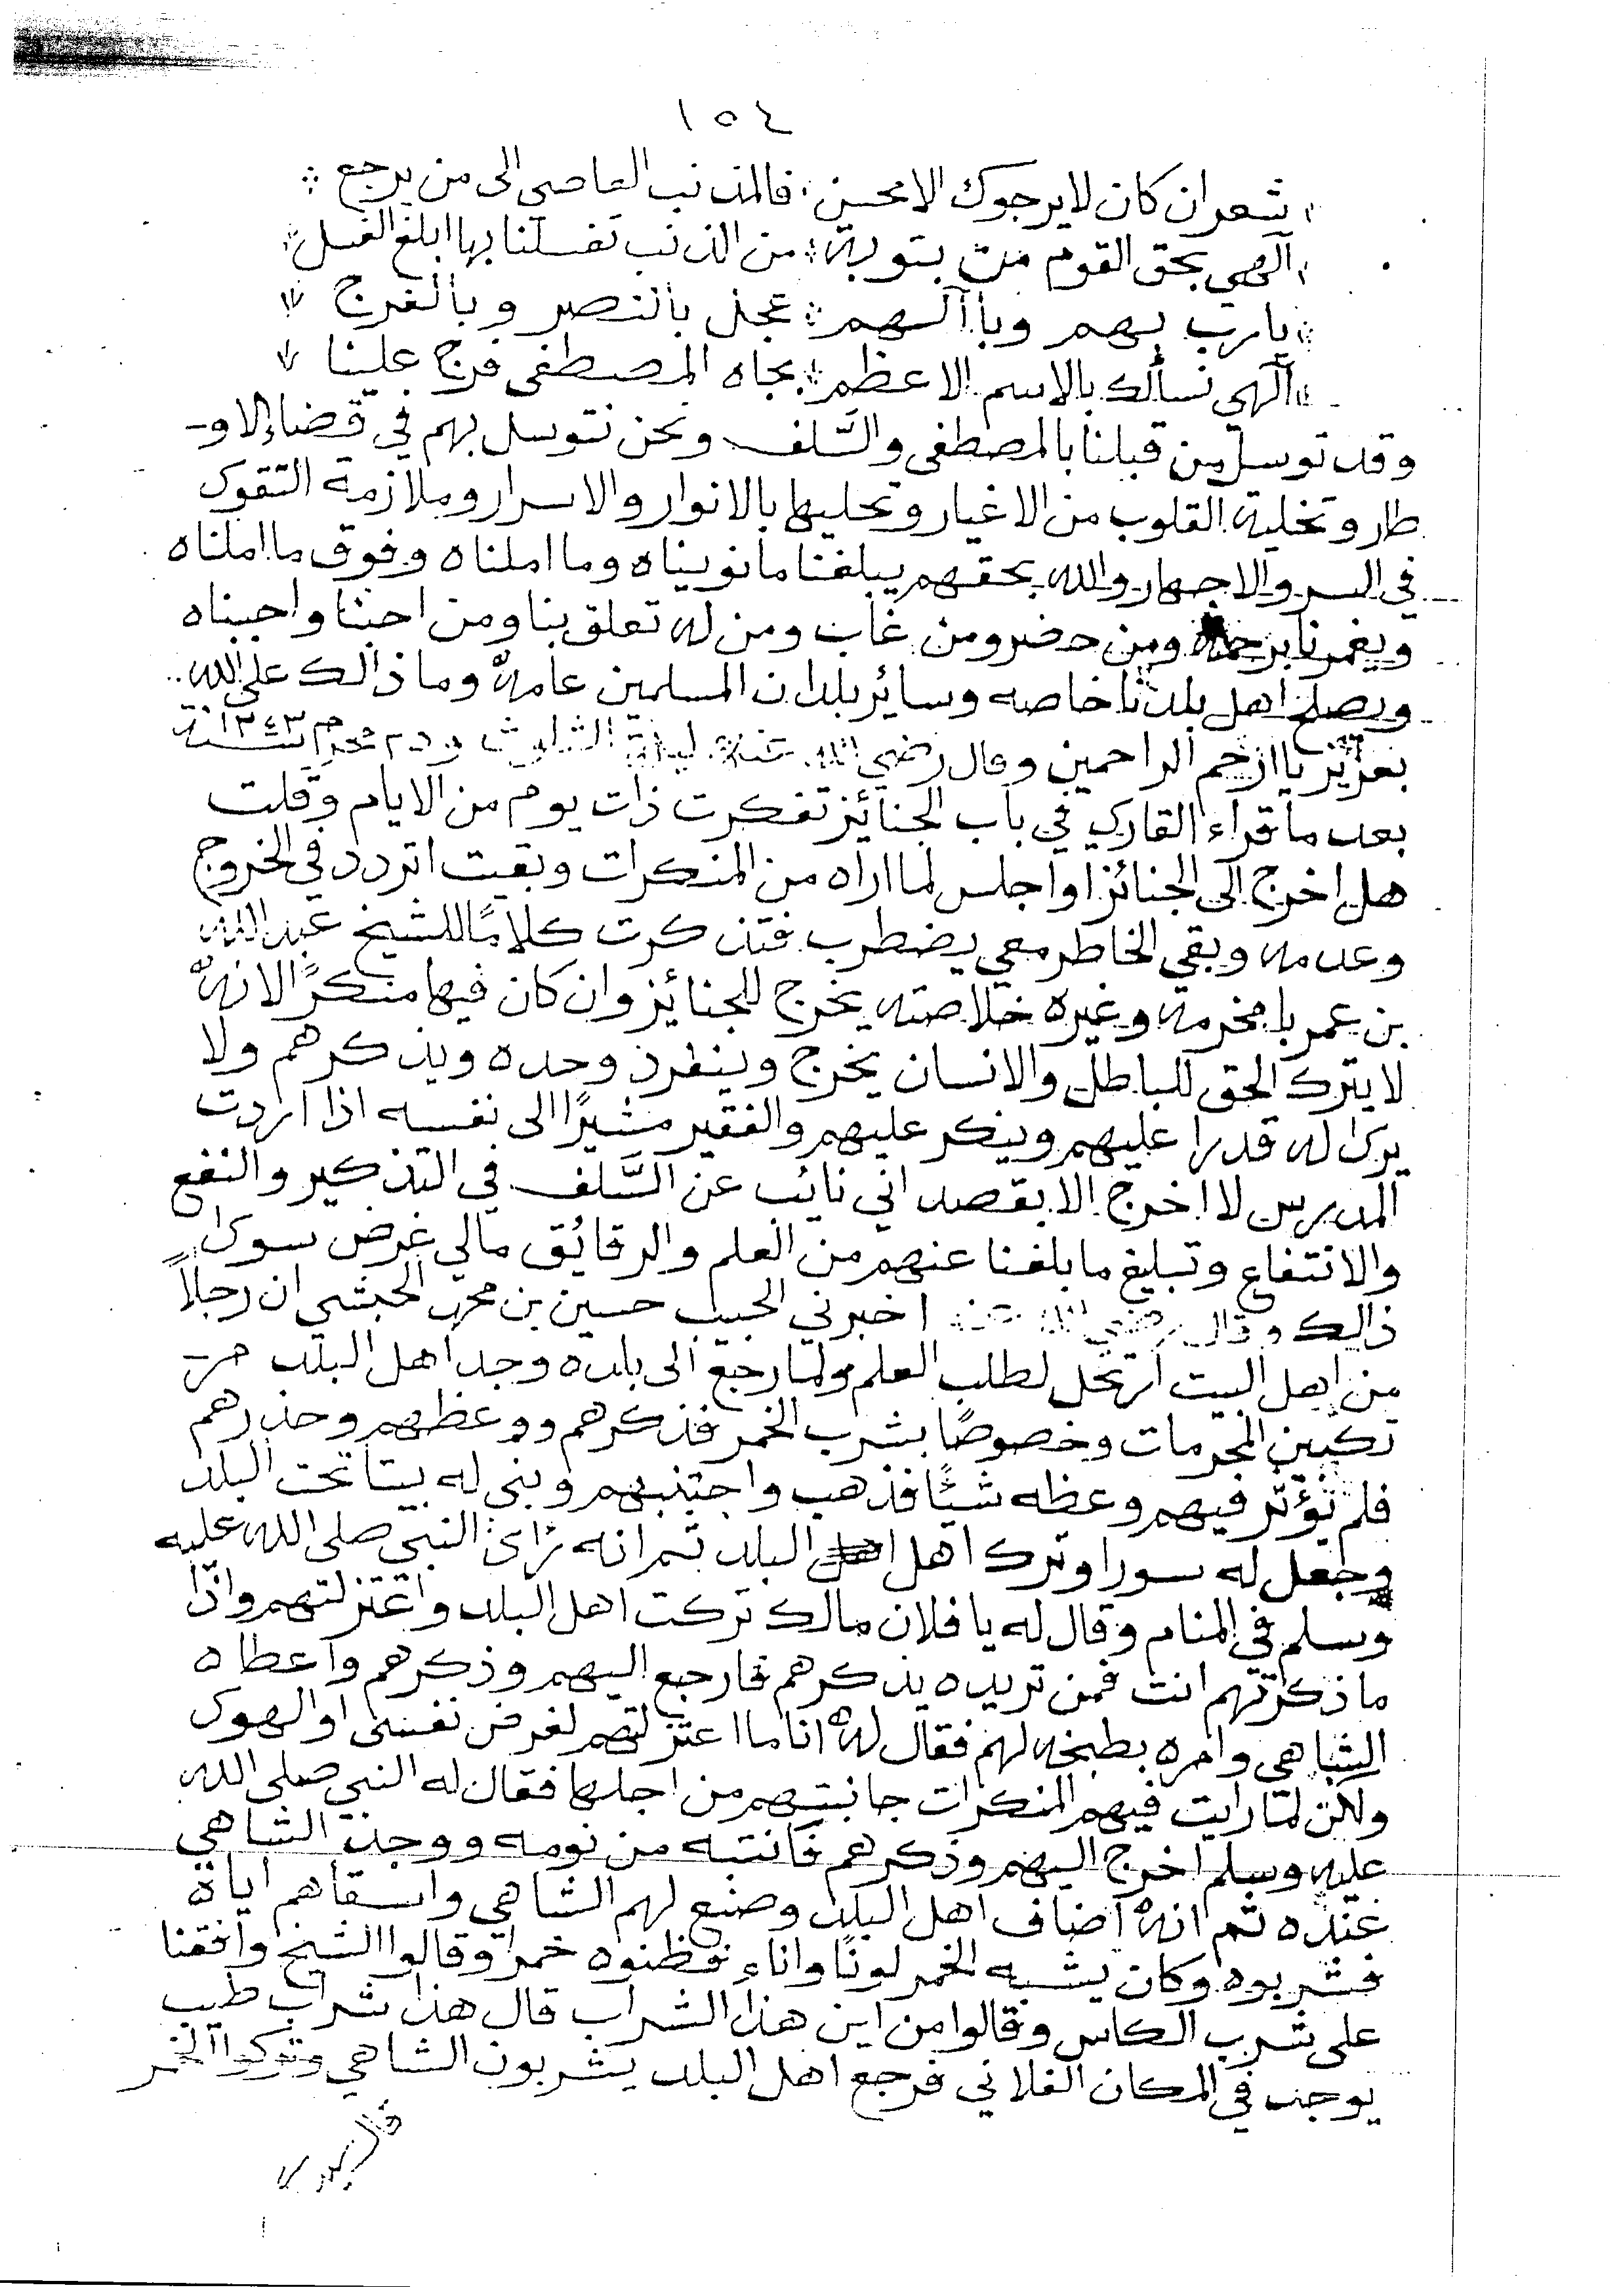 ١٥٤
شعر ان كان لا يرجوك الا محسن ؛ فالمذنب العاصي الى من يرجع ؞
الهي بحق القوم من بتوبة ؞ من الذنب تغسلنا بها ابلغ الغسل ؞
يارب بهم وبا آلهم ؞ عجل بالنصر وبالفرج
آلهي نسألك بالاسم الاعظم ؞ بجاه المصطفى فرج علينا
وقد توسل من قبلنا بالمصطفى والسَّلف ونحن نتوسل بهم في قضاء الاو-
طار وتخلية القلوب من الاغيار وتحليها بالانوار والاسرار وملازمة التقوى
في السر والاجهار والله بحقهم يبلغنا ما نويناه وما املناه وفوق ما املناه
ويغمرنا برحمته ومن حضر ومن غاب ومن له تعلق بنا ومن احبنا واحببناه
ويصلح اهل بلدنا خاصه وسائر بلدان المسلمين عامة وما ذالك على الله
بعزيز يا ارحم الراحمين وقال رضي الله عنه ليلة الثلوث محرم سنة ١٣٤٣
بعد ما قراء القاري في باب الجنائز تفكرت ذات يوم من الايام وقلت
هل اخرج الى الجنائز او اجلس لما اراه من المنكرات وبقيت اتردد في الخروج
وعدمه وبقي الخاطر معي يضطرب فتذكرت كلامًا للشيخ عبد الله
بن عمر با مخرمه وغيره خلاصته يخرج للجنائز وان كان فيها منكرً الانهُ
لا يترك الحق للباطل والانسان يخرج وينفرد وحده ويذكرهم ولا
يرى له قدرا عليهم وينكر عليهم والفقير مشيرًا الى نفسه اذا اردت
المدرس لا اخرج الا بقصد اني نائب عن السَّلف في التذكير والنفع
والانتفاع وتبليغ ما بلغنا عنهم من العلم والرقائق مالي غرض سوى
ذالك وقال رضي الله عنه اخبرني الحبيب حسين بن محمد الحبشي ان رجلاً
من اهل البيت ارتحل لطلب العلم ولما رجع الى بلده وجد اهل البلد مر-
تكبين المحرمات وخصوصًا بشرب الخمر فذكرهم ووعظهم وحذرهم
فلم تؤثر فيهم وعظه شيئًا فذهب واجتنبهم وبنى له بيتا تحت البلد
وجعل له سورا وترك اهل البلد ثم انه رأى النبي صلى الله عليه
وسلم في المنام وقال له يا فلان مالك تركت اهل البلد واعتزلتهم واذا
ما ذكرتهم انت فمن تريده يذكرهم فارجع اليهم وذكرهم واعطاه
الشاهي وامره بطبخه لهم فقال لهُ انا ما اعتزلتهم لغرض نفسي او الهوى
ولاكن لما رايت فيهم المنكرات جانبتهم من اجلها فقال له النبي صلى الله
عليه وسلم اخرج اليهم وذكرهم فانتبه من نومه ووجد الشاهي
عنده ثم انهُ اضاف اهل البلد وصنع لهم الشاهي واسقاهم اياه
فشربوه وكان يشبه الخمر لونًا واناءِ فظنوه خمرا وقالوا الشيخ وافقنا
على شرب الكاس وقالوا من اين هذا الشراب قال هذا شراب طيب
يوجد في المكان الفلاني فرجع اهل البلد يشربون الشاهي وتركوا الخمر